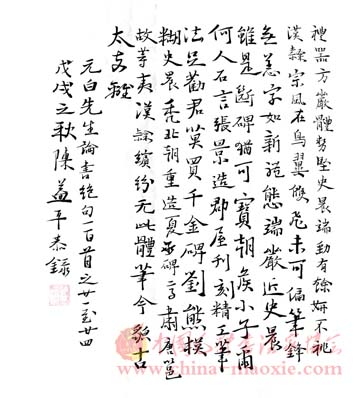 禮器方嚴體勢堅史晨端勁有餘妍不祧
漢隸宗風在鳥翼雙飛未可偏筆鋒
無恙字如新體態端嚴近史晨
雖是斷碑猶可寶朝侯小子爾
何人石言張景造郡屋刊刻精工筆
法足勸君莫買千金碑劉熊模
糊史晨秃北朝重造夏承碑高肅唐邕
故等夷漢隸繽紛无此體筆今貌古
太支離
元白先生論書絕句一百首之廿一至廿四
戊戌之秋陳益平恭錄
www.china-maoxie.com